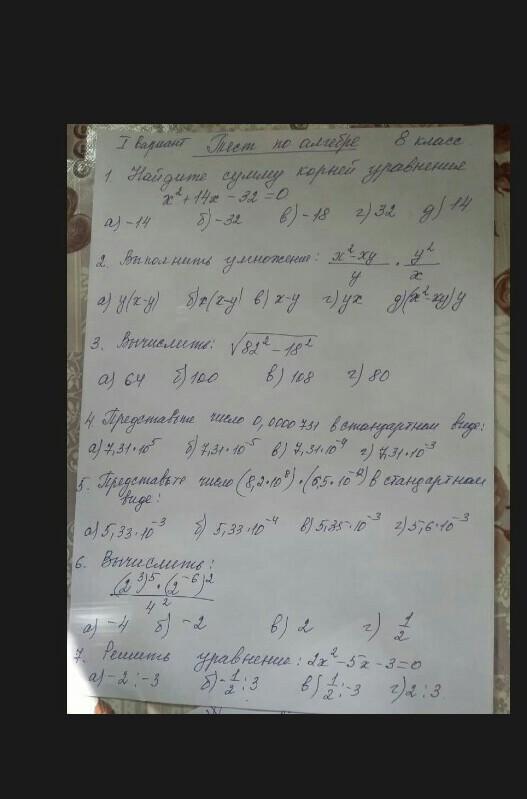 I вариант Тест по алгебре 8 класс
1. Найдите сумму корней уравнения
x² + 14x - 32 = 0
а) -14 б) -32 в) -18 г) 32 д) 14
2. Выполнить умножение: (x² - xy)/y · y²/x
а) y(x-y) б) x(x-y) в) x-y г) yx д) (x²-xy)y
3. Вычислить: √(82² - 18²)
а) 64 б) 100 в) 108 г) 80
4. Представьте число 0,0000731 в стандартном виде:
а) 7,31·10⁵ б) 7,31·10⁻⁵ в) 7,31·10⁻⁴ г) 7,31·10⁻³
5. Представьте число (8,2·10⁸)·(6,5·10⁻¹²) в стандартном
виде:
а) 5,33·10⁻³ б) 5,33·10⁻⁴ в) 5,35·10⁻³ г) 5,6·10⁻³
6. Вычислить:
(2³)⁵·(2⁻⁶)²/4²
а) -4 б) -2 в) 2 г) 1/2
7. Решить уравнение: 2x² - 5x - 3 = 0
а) -2; -3 б) -1/2; 3 в) 1/2; -3 г) 2; 3